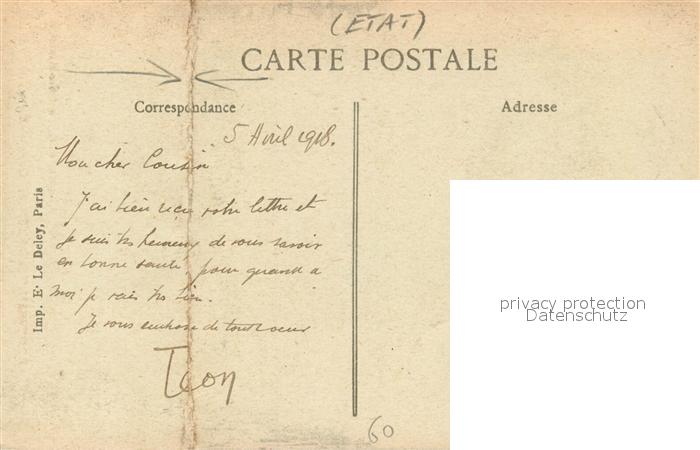 (ETAT)
CARTE POSTALE
Correspondance
Adresse
5 Avril 1918.
Mon cher Cousin
J'ai bien reçu votre lettre et
je suis très heureux de vous savoir
en bonne santé, pour quand a
moi je vais très bien.
Je vous embrasse de tout coeur
Léon
Imp. E. Le Deley, Paris
60
privacy protection
Datenschutz